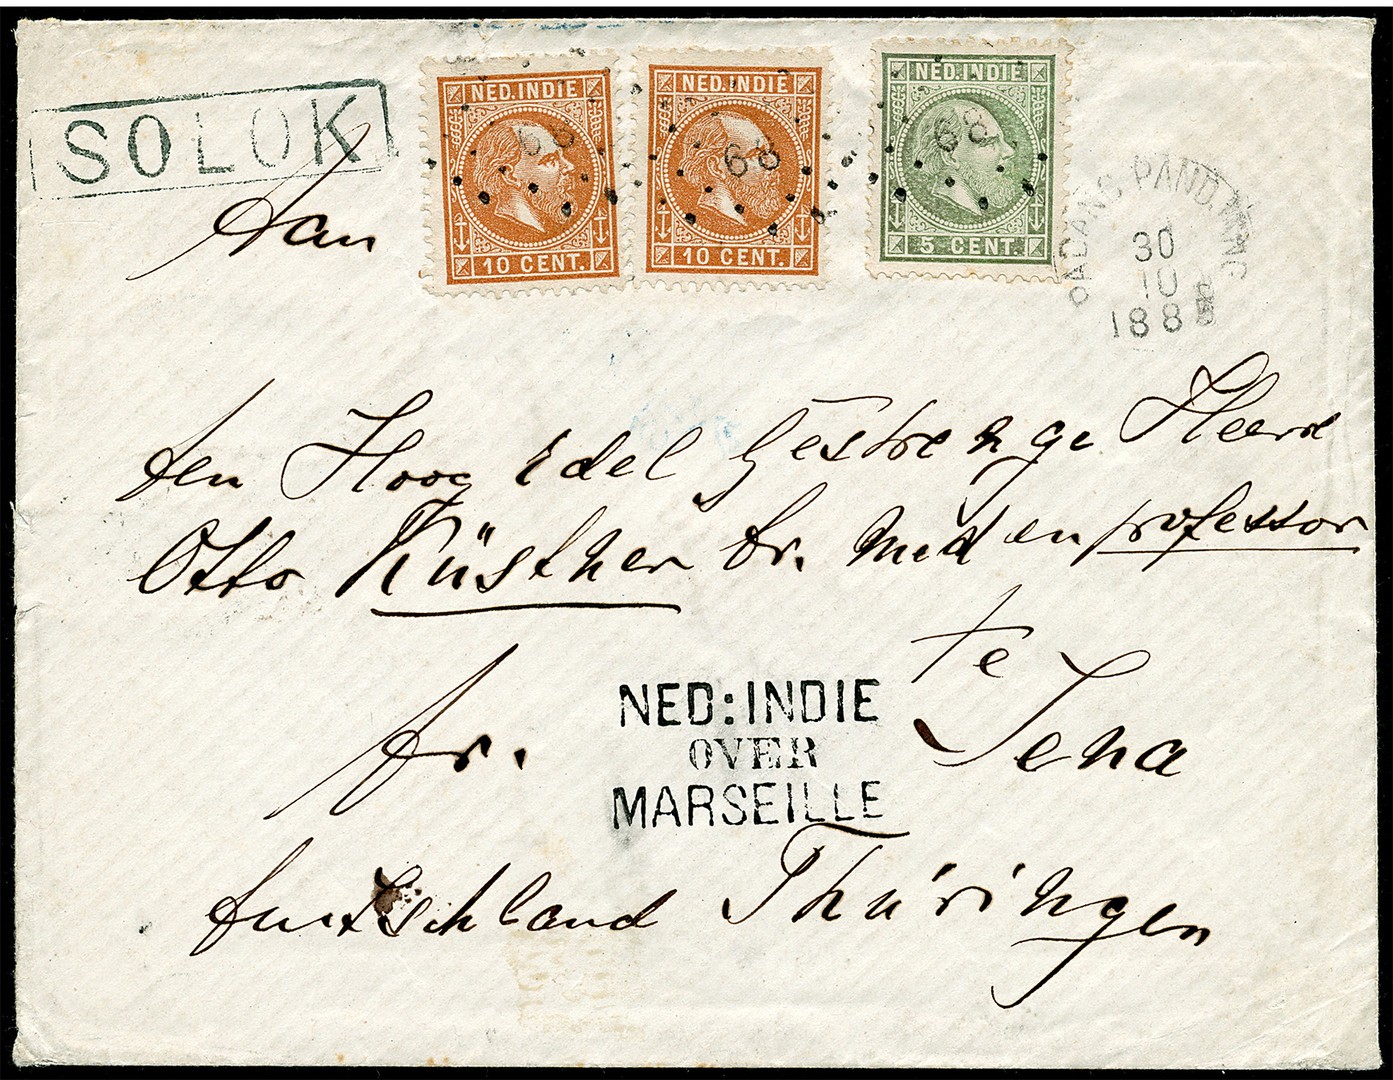 SOLOK
NED. INDIE
68
10 CENT.
NED. INDIE
68
10 CENT.
NED. INDIE
68
5 CENT.
PADANG PAND.
30
10
188
Aan
den Hoog Edel Gestrenge Heere
Otto Küsther Dr. Med en professor
te
fr. Jena
NED: INDIE
OVER
MARSEILLE
Duitschland Thüringen